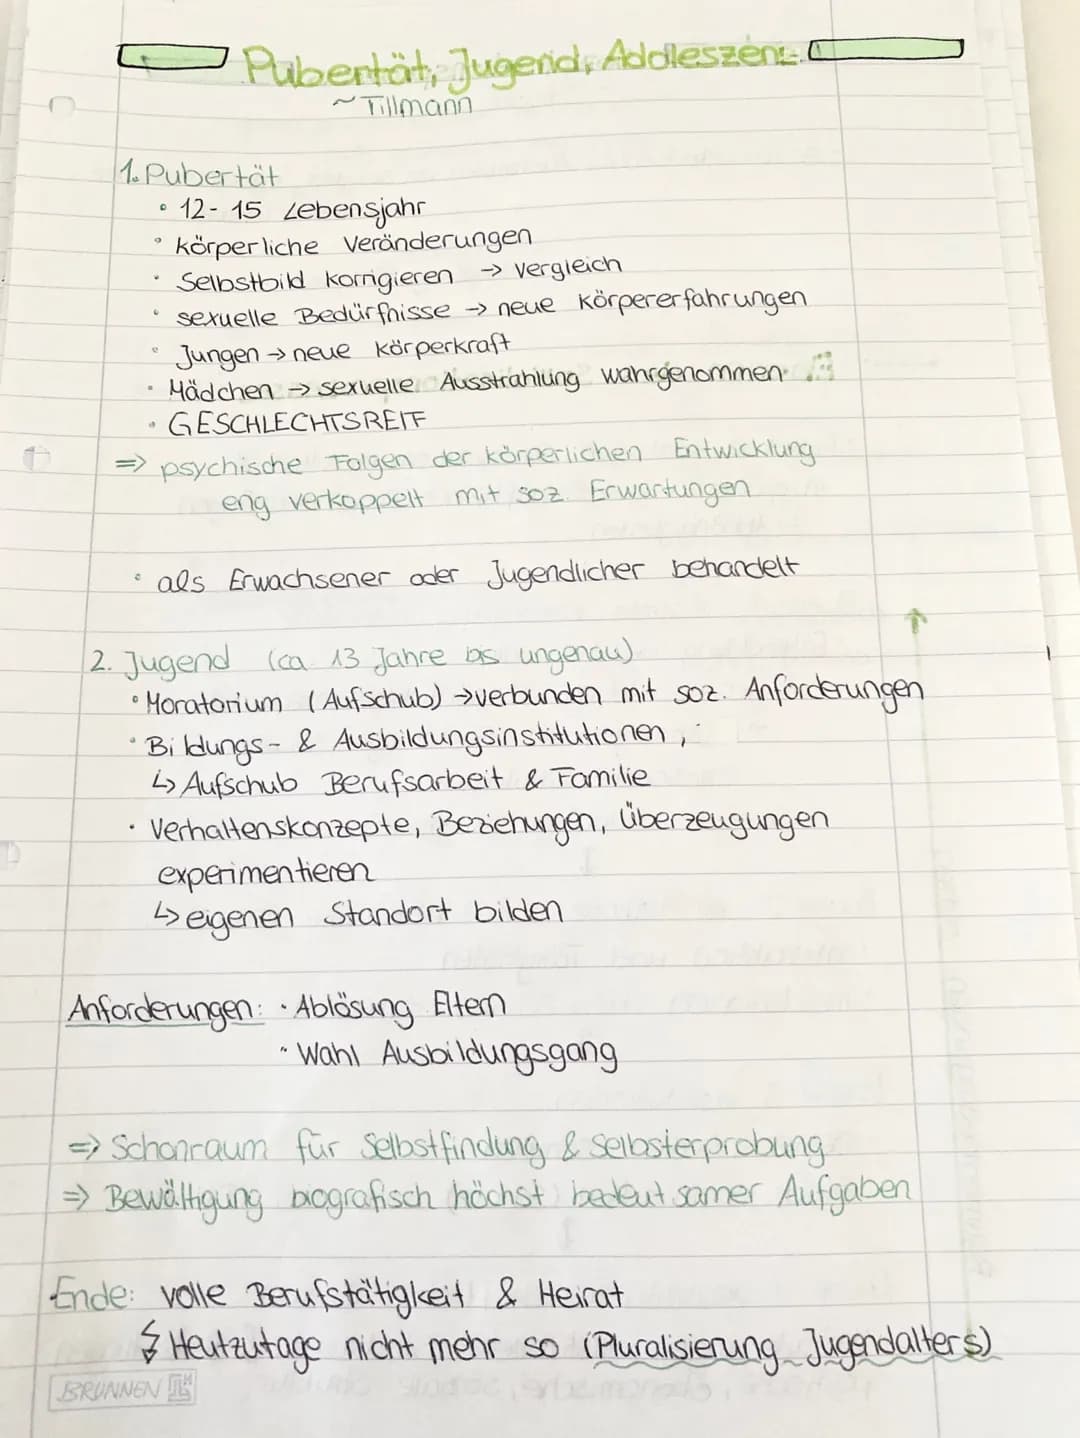 Pubertät, Jugend, Adoleszenz
~Tillmann
1. Pubertät
• 12-15 Lebensjahr
• körperliche Veränderungen
• Selbstbild korrigieren → Vergleich
• sexuelle Bedürfnisse → neue Körpererfahrungen
• Jungen → neue Körperkraft
• Mädchen → sexuelle Ausstrahlung wahrgenommen
• GESCHLECHTSREIF
=> psychische Folgen der körperlichen Entwicklung
eng verkoppelt mit soz. Erwartungen
• als Erwachsener oder Jugendlicher behandelt
2. Jugend (ca. 13 Jahre bis ungenau)
• Moratorium (Aufschub) → verbunden mit soz. Anforderungen
• Bildungs- & Ausbildungsinstitutionen,
↳ Aufschub Berufsarbeit & Familie
• Verhaltenskonzepte, Beziehungen, Überzeugungen
experimentieren
↳ eigenen Standort bilden
Anforderungen: • Ablösung Eltern
• Wahl Ausbildungsgang
=> Schonraum für Selbstfindung & Selbsterprobung
=> Bewältigung biografisch höchst bedeutsamer Aufgaben
Ende: volle Berufstätigkeit & Heirat
↯ Heutzutage nicht mehr so (Pluralisierung Jugendalters)
BRUNNEN